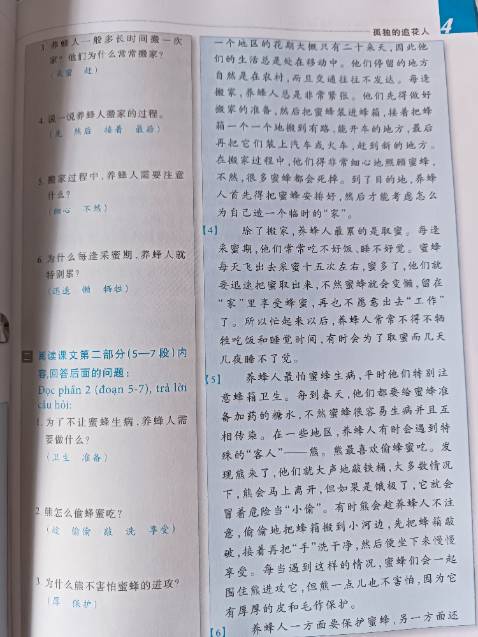 孤独的追花人 4
3 养蜂人一般多长时间搬一次
家？他们为什么常常搬家？
4 说一说养蜂人搬家的过程。
（先 然后 接着 最后）
5 搬家过程中，养蜂人需要注意
什么？
（细心 不然）
6 为什么每逢采蜜期，养蜂人就
特别累？
（迅速 懒 牺牲）
二 阅读课文第二部分（5—7段）内
容，回答后面的问题：
Đọc phần 2 (đoạn 5-7), trả lời
câu hỏi:
1 为了不让蜜蜂生病，养蜂人需
要做什么？
（卫生 准备）
2 熊怎么偷蜂蜜吃？
（趁 偷偷 敲 洗 享受）
3 为什么熊不害怕蜜蜂的进攻？
（厚 保护）
一个地区的花期大概只有二十来天，因此他
们的生活总是处在移动中。他们停留的地方
自然是在农村，而且交通往往不发达。每逢
搬家，养蜂人总是非常紧张。他们先得做好
搬家的准备，然后把蜜蜂装进蜂箱，接着把蜂
箱一个一个地搬到有路、能开车的地方，最后
再把它们装上汽车或火车，赶到新的地方。
在搬家过程中，他们得非常细心地照顾蜜蜂，
不然，很多蜜蜂都会死掉。到了目的地，养蜂
人首先得把蜜蜂安排好，然后才能考虑怎么
为自己造一个临时的“家”。
【4】 除了搬家，养蜂人最累的是取蜜。每逢
采蜜期，他们常常吃不好饭、睡不好觉。蜜蜂
每天飞出去采蜜十五次左右，蜜多了，他们就
要迅速把蜜取出来，不然蜜蜂就会变懒，留在
“家”里享受蜂蜜，再也不愿意出去“工作”
了。所以忙起来以后，养蜂人常常不得不牺
牲吃饭和睡觉时间，有时会为了取蜜而几天
几夜睡不了觉。
【5】 养蜂人最怕蜜蜂生病，平时他们特别注
意蜂箱卫生。每到春天，他们都要给蜜蜂准
备加药的糖水，不然蜜蜂很容易生病并且互
相传染。在一些地区，养蜂人有时会遇到特
殊的“客人”——熊。熊最喜欢偷蜂蜜吃。发
现熊来了，他们就大声地敲铁桶，大多数情况
下，熊会马上离开，但如果是饿极了，它就会
冒着危险当“小偷”。有时熊会趁养蜂人不注
意，偷偷地把蜂箱搬到小河边，先把蜂箱敲
破，接着再把“手”洗干净，然后便坐下来慢慢
享受。每当遇到这样的情况，蜜蜂们会一起
围住熊进攻它，但熊一点儿也不害怕，因为它
有厚厚的皮和毛作保护。
【6】 养蜂人一方面要保护蜜蜂，另一方面还